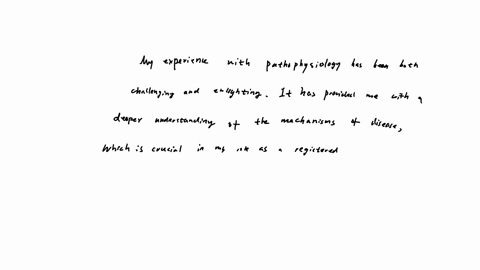 My experience with pathophysiology has been both
challenging and enlighting. It has provided me with a
deeper understanding of the mechanisms of disease,
which is crucial in my role as a registered